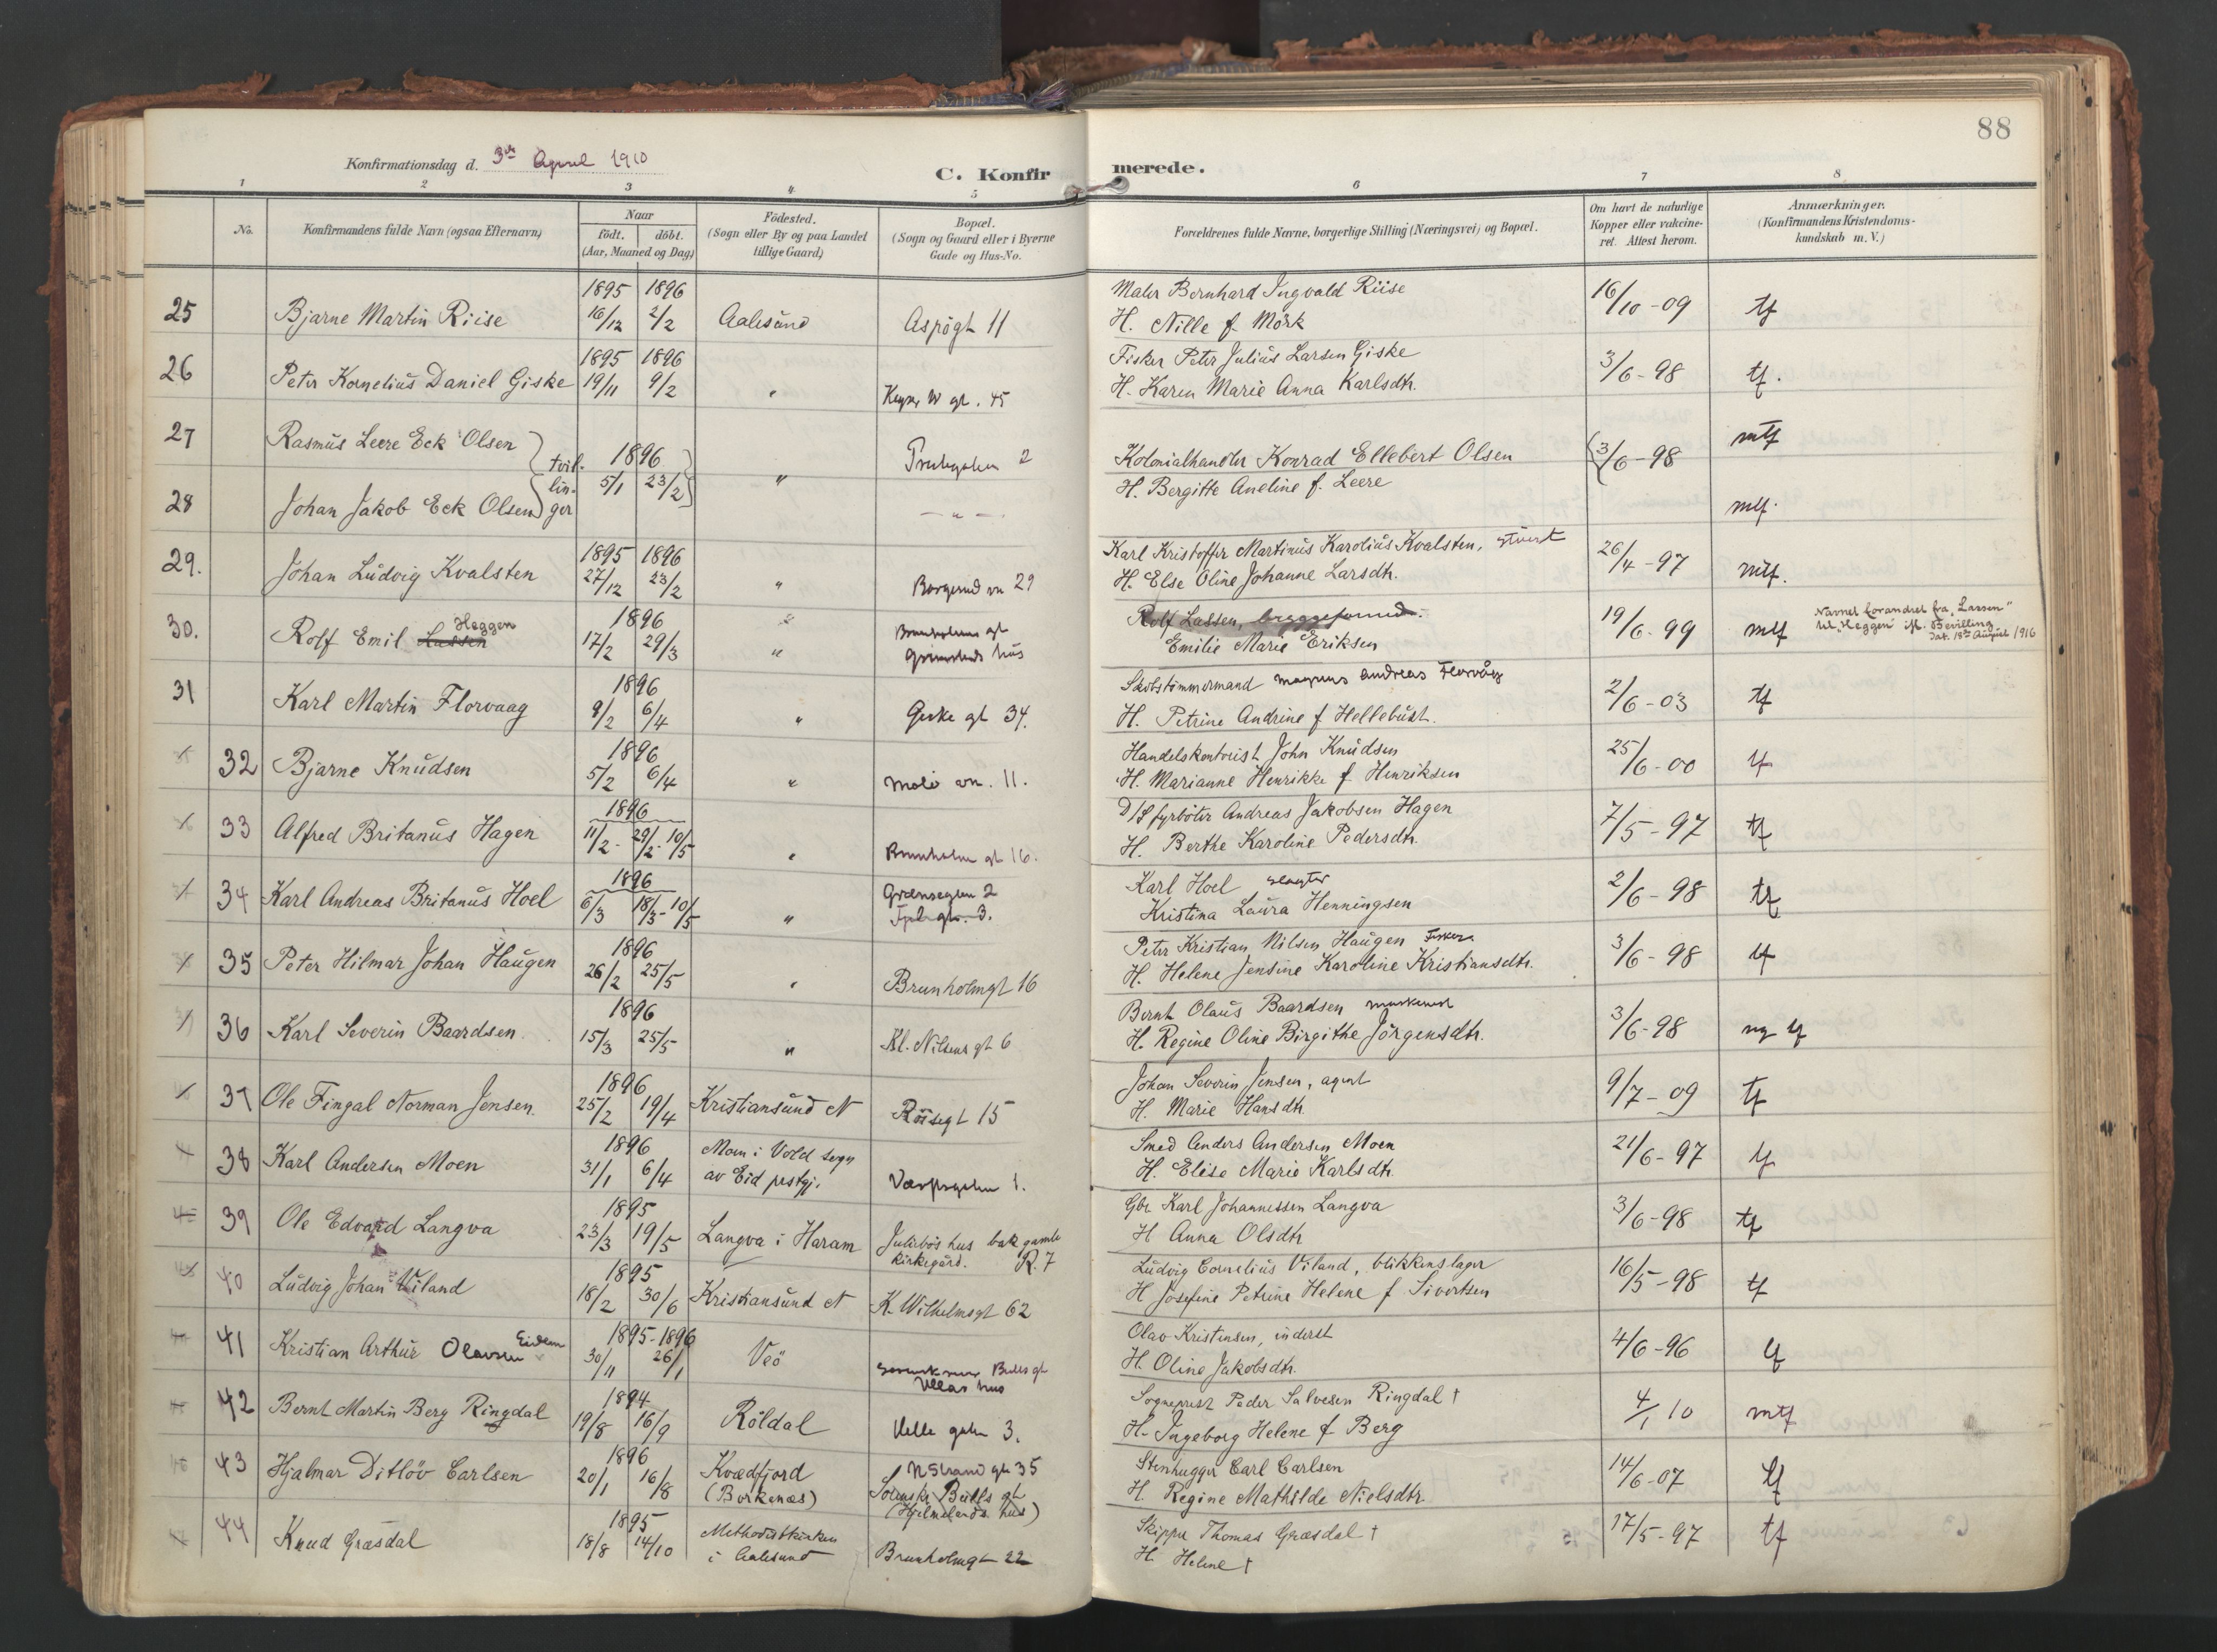 88
Konfirmationsdag d. 3die April 1910
C. Konfirmerede.
1 2 3 4 5 6 7 8
No.
Konfirmandens fulde Navn (ogsaa Efternavn)
Naar
födt. döbt.
(Aar, Maaned og Dag)
Födested.
(Sogn eller By og paa Landet
tillige Gaard)
Bopæl.
(Sogn og Gaard eller i Byerne
Gade og Hus-No.
Forældrenes fulde Navne, borgerlige Stilling (Næringsvei) og Bopæl.
Om havt de naturlige
Kopper eller vakcine-
ret. Attest herom.
Anmærkninger.
(Konfirmandens Kristendoms-
kundskab m. V.)
25 Bjarne Martin Riise 1895 16/12 1896 2/2 Aalesund Aspögt 11
Maler Bernhard Ingvald Riise
H. Nille f. Mörk
16/10-09 tf
26 Peter Kornelius Daniel Giske 1895 19/11 1896 9/2 " gt. 45
Fisker Peter Julius Larsen Giske
H. Karen Marie Anna Karlsdtr.
3/6-98 tf.
27 Rasmus Leere Eck Olsen
28 Johan Jakob Eck Olsen
tvil-
lin-
ger
1896 5/1 23/2 " 2
– " –
Kolonialhandler Konrad Ellebert Olsen
H. Bergitte Aneline f. Leere
3/6-98 mtf
mtf.
29. Johan Ludvig Kvalsten 1895 27/12 1896 23/2 " Borgund vn 29
Karl Kristoffer Martinus Karolius Kvalsten, stuert
H. Else Oline Johanne Larsdtr.
26/4-97 mtf.
30. Rolf Emil Lassen Heggen 1896 17/2 29/3 " Brunholms gt
hus
Rolf Lassen, bryggeformand.
Emilie Marie Eriksen
19/6-99 mtf
Navnet forandret fra „Lassen"
til „Heggen" ifl. Bevilling
dat. 18de August 1916
31 Karl Martin Florvaag 1896 9/2 6/4 " Giske gt 34.
Skibstömmermand Magnus Andreas Florvåg
H. Petrine Andrine f Hellebust.
2/6-03 tf
32 Bjarne Knudsen 1896 5/2 6/4 " Molo vn. 11.
Handelskontorist John Knudsen
H. Marianne Henrikke f. Henriksen
25/6-00 tf
33 Alfred Britanus Hagen 1896 11/2 - 29/2 - 10/5 " Brunholm gt 16.
D/S fyrböter Andreas Jakobsen Hagen
H. Berthe Karoline Pedersdtr.
7/5-97 tf
34 Karl Andreas Britanus Hoel 1896 6/3 18/3 - 10/5 " Grænsegten 2
3.
Karl Hoel slagter
Kristina Laura Henningsen
2/6-98 tf
35 Peter Hilmar Johan Haugen 1896 26/2 25/5 " Brunholmgt 16
Peter Kristian Nilsen Haugen Fisker
H. Helene Jensine Karoline Kristiansdtr.
3/6-98 tf
36 Karl Severin Baardsen 1896 15/3 25/5 " Kl. Nilsens gt 6
Bernt Olaus Baardsen maskinist
H. Regine Oline Birgithe Jörgensdtr.
3/6-98 ng tf
37 Ole Fingal Norman Jensen. 1896 25/2 19/4 Kristiansund N Rösegt 15
Johan Severin Jensen, agent
H. Marie Hansdtr.
9/7-09 tf
38 Karl Andersen Moen 1896 31/1 6/4 Moen i Vold sogn
av Eid prstgj. 1.
Smed Anders Andersen Moen
H. Elise Marie Karlsdtr.
21/6-97 tf
39 Ole Edvard Langva 1895 23/3 19/5 Langva i Haram hus bak gamle
kirkegård. R. 7
Gbr. Karl Johannessen Langva
H Anna Olsdtr
3/6-98 tf
40 Ludvig Johan Viland 1895 18/2 30/6 Kristiansund N K. Wilhelmsgt 62
Ludvig Cornelius Viland, blikkenslager
H Josefine Petrine Helene f Sivertsen
16/5-98 tf
41 Kristian Arthur Olavsen Eidem 1895-1896 30/11 26/1 Veö Bulls gt
Ullas hus
Olav Kristensen, inderst
H. Oline Jakobsdtr.
4/6-96 tf
42 Bernt Martin Berg Ringdal 1894 19/8 16/9 Röldal Uelle gaten 3.
Sogneprest Peder Salvesen Ringdal †
H. Ingeborg Helene f Berg
4/1 10 mtf
43 Hjalmar Ditlöv Carlsen 1896 20/1 16/8 Kvædfjord
(Borkenæs) N Strand gt 35
Sörenskr. Bulls gt
(Hjelmelands hus)
Stenhugger Carl Carlsen
H. Regine Mathilde Nielsdtr.
14/6-07 tf
44 Knud Græsdal 1895 18/8 14/10 Methodistkirken
i Aalesund Brunholmgt 22
Skipper Thomas Græsdal †
H Helene †
17/5-97 tf